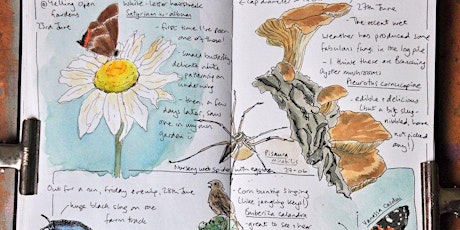 @Yelling Open Gardens
23rd June
White-letter hairstreak
Satyrium w-album
- first time I've seen
one of these!
- small butterfly,
delicate white
patterning on
underwing
- then, a few
days later, saw
one in my own
garden
27th June
- The recent wet
weather has produced some
fabulous fungi in the log pile
- I think these are branching
oyster mushrooms
Pleurotus cornucopiae
- edible & delicious
(but a bit slug-
nibbled here
& not picked
any!)
Pisaura
mirabilis
Nursery web spider with egg
27-06
Out for a run, Friday evening, 28th June
huge black slug on the
farm track
Corn bunting singing
(like jangling keys!)
Emberiza calandra
- great to see & hear
Vanessa